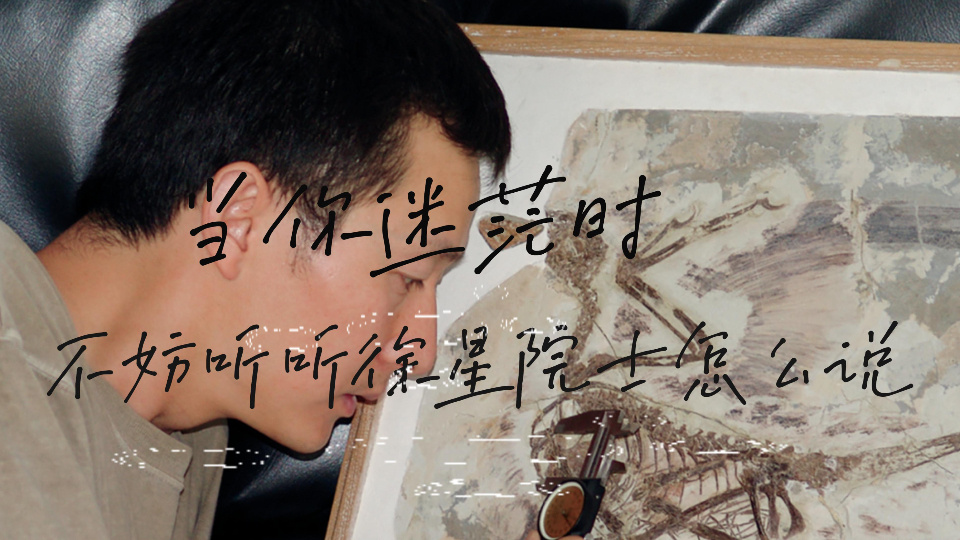 当你迷茫时
不妨听听徐星院士怎么说